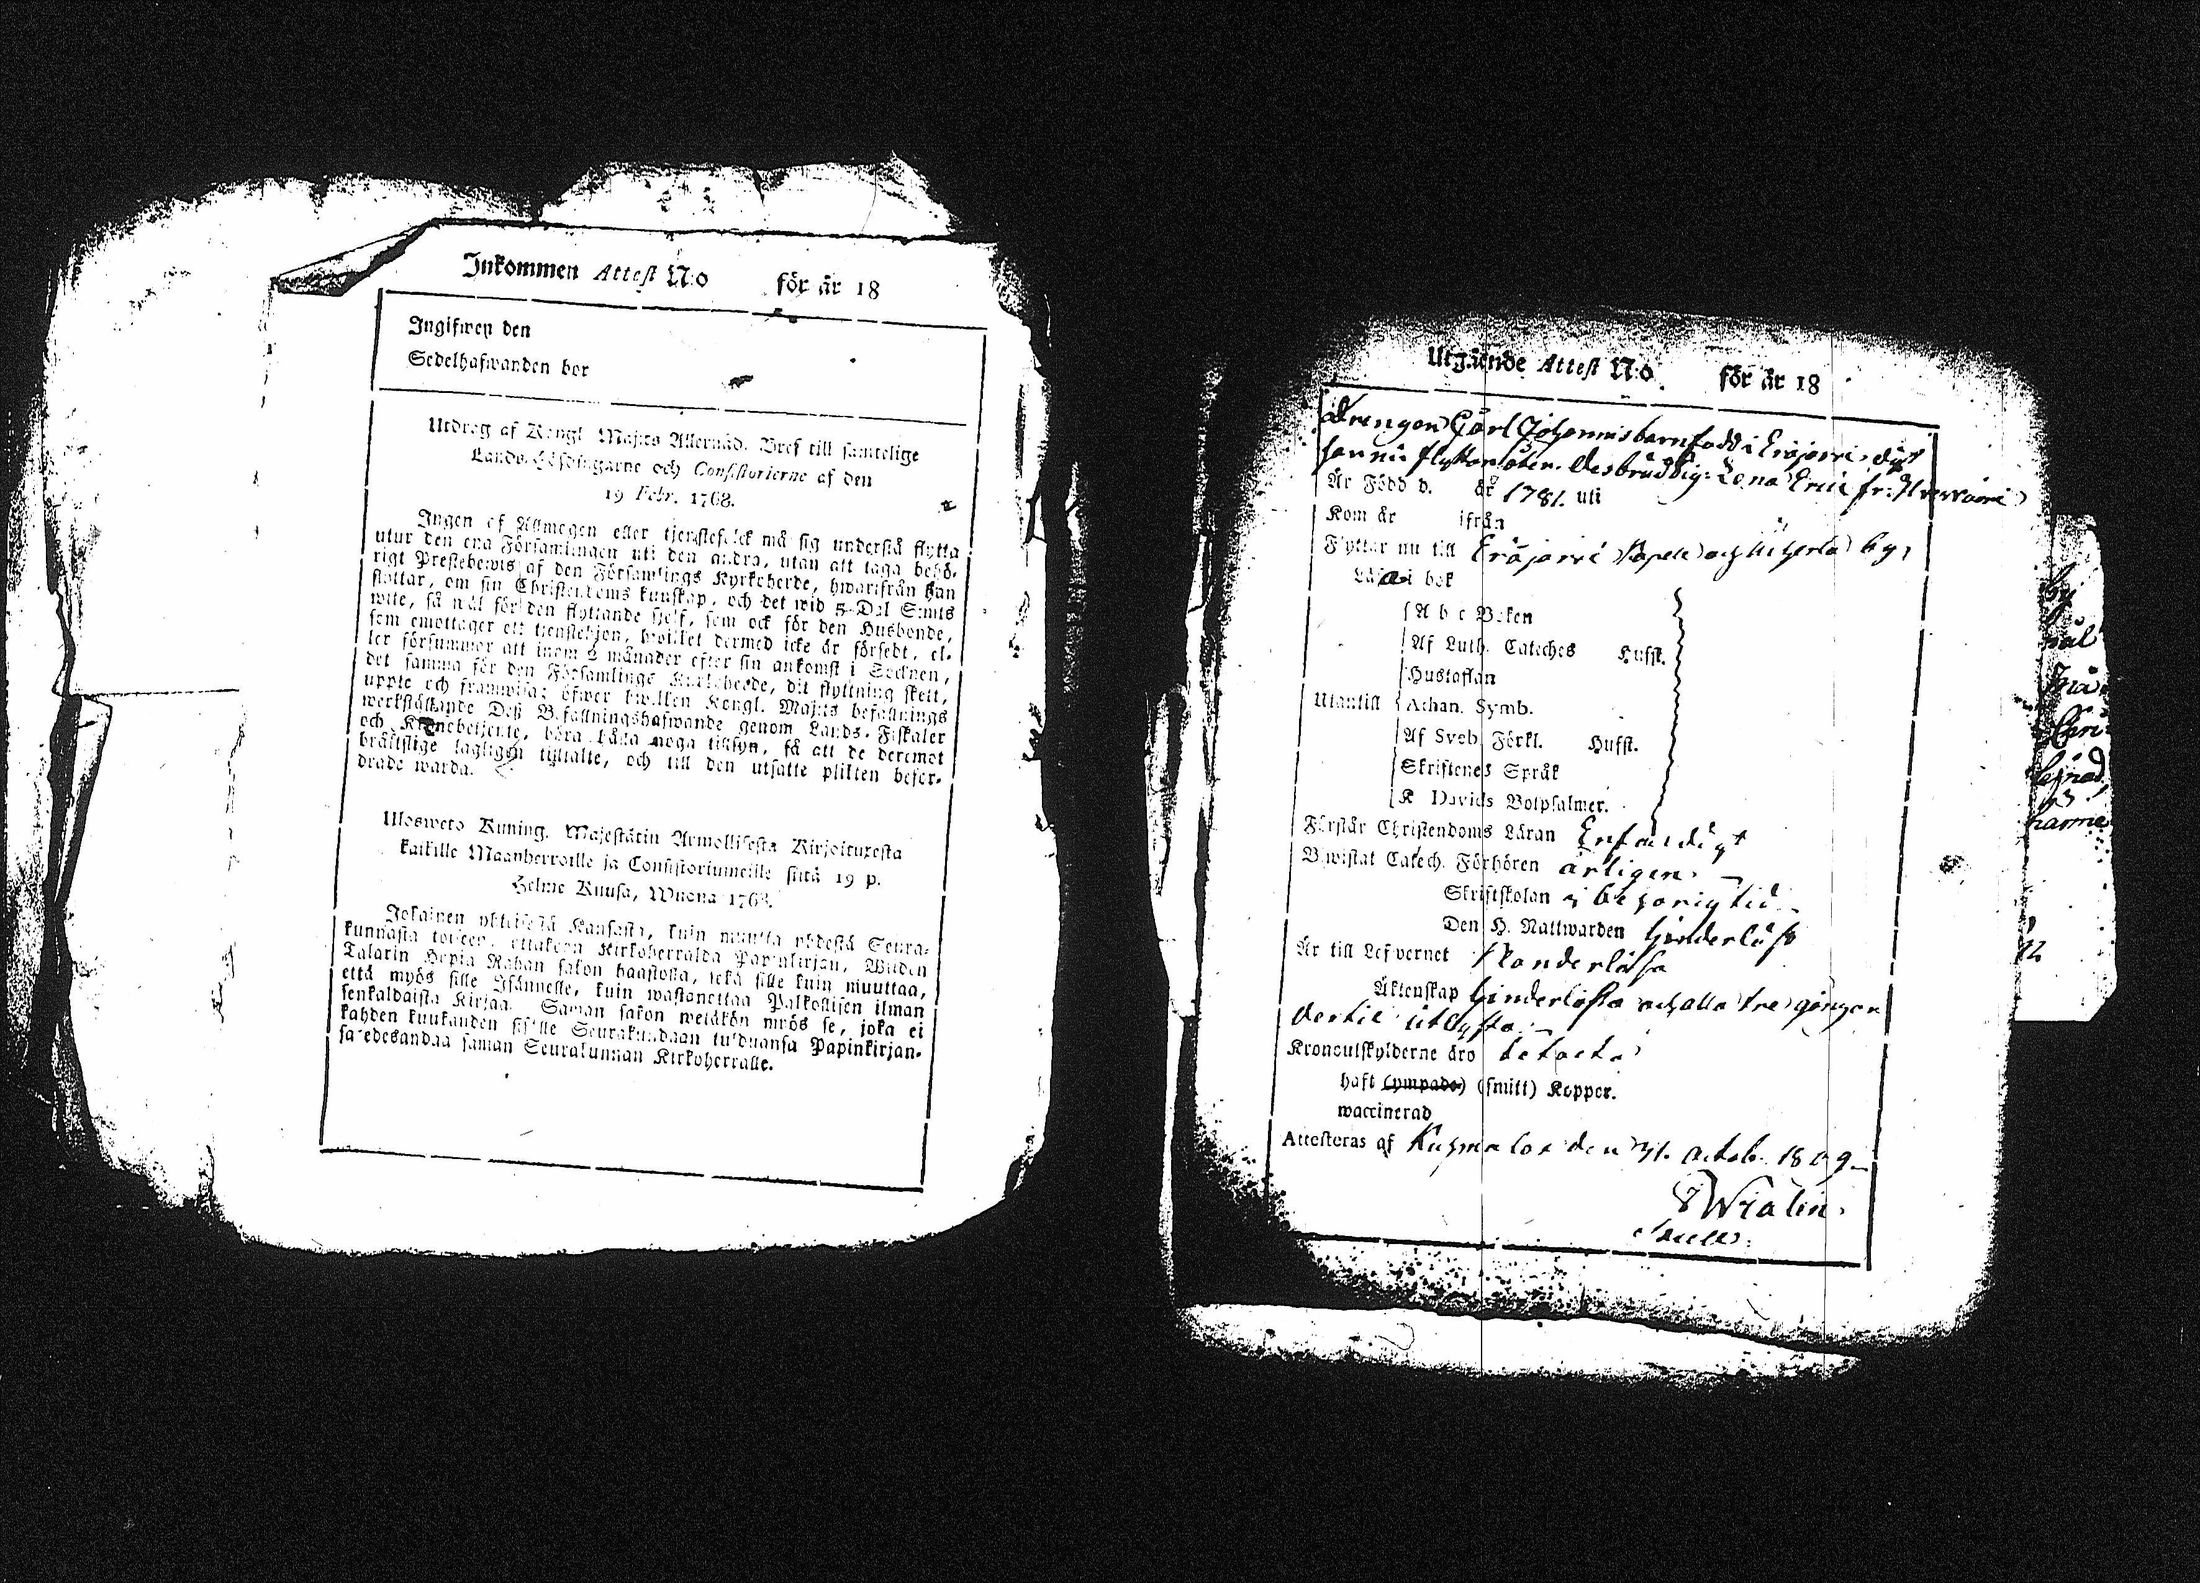 Inkommen Attest N:o för år 18
Ingifwen den
Sedelhafwanden bor
Utdrag af Kongl. Maj:ts Allernåd. Bref till samtelige
Lands-Höfdingarne och Consistorierne af den
19 Febr. 1768.
Ingen af Allmogen eller tjenstefolck må sig understå flytta
utur den ena Församlingen uti den andra, utan att taga behö-
rigt Prestebewis af den Församlings Kyrkoherde, hwarifrån han
flyttar, om sin Christendoms kunskap, och det wid 5 Dal. S:mts
wite, så wäl för den flyttande sjelf, som ock för den Husbonde,
som emottager ett tjenstehjon, hwilket dermed icke är försedt, el-
ler försummar att inom 2 månader efter sin ankomst i Socknen,
det samma för den Församlings Kyrkoherde, dit flyttning skett,
uppte och framwisa: öfwer hwilken Kongl. Maj:ts befallnings
werkställande Deß Befallningshafwande genom Lands-Fiskaler
och Kronobetjente, böra hålla noga tillsyn, så att de deremot
bråttslige lagligen tilltalte, och till den utsatte plikten befor-
drade warda.
Ulosweto Kuning. Majestätin Armollisesta Kirjoituxesta
kaikille Maanherroille ja Consistoriumeille siitä 19 p.
Helme Kuusa, Wuona 1768.
Jokainen yhteisestä Kansasta, kuin muutta yhdestä Seura-
kunnasta toiseen, ottakoon Kirkoherralda Papinkirjan, Wiiden
Talarin Hopia Rahan sakon haastolla, sekä sille kuin muuttaa,
että myös sille Isännelle, kuin wastanottaa Palkollisen ilman
senkaldaista Kirjaa. Saman sakon wetäkön myös se, joka ei
kahden kuukauden sisälle Seurakundaan tulduansa Papinkirjan-
sa edesandaa saman Seurakunnan Kirkoherralle.
Utgående Attest N:o för år 18
Drengen Carl Johannisbarn född i Eräjerwi
flyttar åter.
Är Född d. år 1781. uti
Kom år ifrån
Flyttar nu till Eräjerwi Capell och by,
Läser i bok
A b c Boken
Af Luth. Cateches Hufst.
Hustaflan
Utantill Athan. Symb.
Af Sveb. Förkl. Hufst.
Skriftenes Språk
K Davids Botpsalmer.
Förstår Christendoms Läran Enfaldigt
Bewistat Catech. Förhören årligen
Skriftskolan i behörig tid
Den H. Nattwarden
Är till Lefwernet
Äktenskap hinderlösa och alla tre gånger
dertil utlysta
Kronoutskylderne äro betalta
haft (ympade) (smitt) Koppor.
waccinerad
Attesteras af Kuhmalax den 31. Octob. 1809